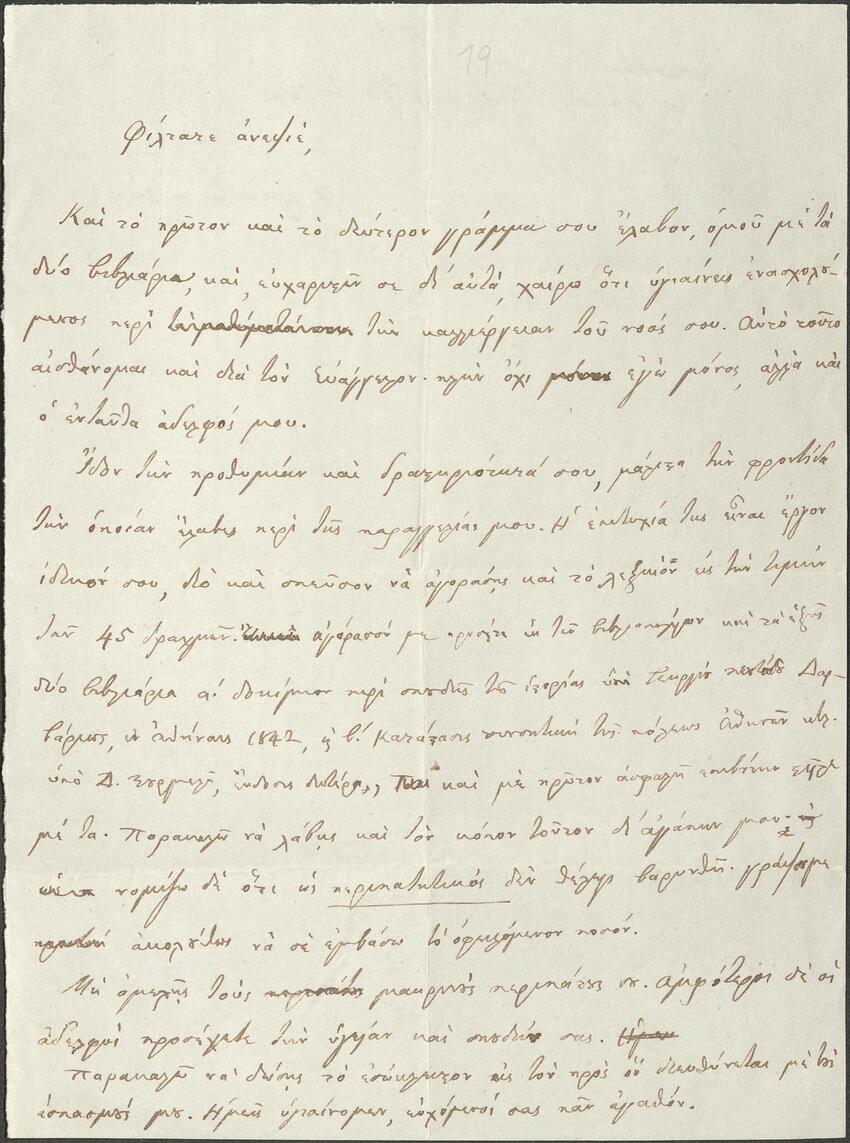 19
Φίλτατε ἀνεψιέ,
Καὶ τὸ πρῶτον καὶ τὸ δεύτερον γράμμα σου ἔλαβον, ὁμοῦ μὲ τὰ
δύο βιβλιάρια, καὶ εὐχαριστῶν σε δι' αὐτά, χαίρω ὅτι ὑγιαίνεις ἐνασχολού-
μενος περὶ τὴν καλλιέργειαν τοῦ νοός σου. Αὐτὸ τοῦτο
αἰσθάνομαι καὶ διὰ τὸν Εὐάγγελον· πλὴν ὄχι μόνον ἐγὼ μόνος, ἀλλὰ καὶ
ὁ ἐνταῦθα ἀδελφός μου.
Ἴδον τὴν προθυμίαν καὶ δραστηριότητά σου, μάλιστα τὴν φροντίδα
τὴν ὁποίαν ἔλαβες περὶ τῆς παραγγελίας μου. Ἡ ἐπιτυχία της εἶναι ἔργον
ἰδικόν σου, διὸ καὶ σπεῦσον νὰ ἀγοράσῃς καὶ τὸ λεξικὸν εἰς τὴν τιμὴν
τῶν 45 δραχμῶν. ἀγόρασόν με προσέτι ἐκ τοῦ βιβλιοπωλείου καὶ τὰ ἑξῆς
δύο βιβλιάρια α'. δοκίμιον περὶ σπουδῆς τῆς ἱστορίας ὑπὸ Γεωργίου Δαρ-
βάρεως, ἐν Ἀθήναις 1842, β'. Κατάστασις συνοπτικὴ τῆς πόλεως Ἀθηνῶν κτλ.
ὑπὸ Δ. Σουρμελῆ, ἔκδοσις δευτέρα, καὶ μὲ πρῶτον ἀσφαλῆ ἐπιβάτην στεῖλέ
μέ τα. Παρακαλῶ νὰ λάβῃς καὶ τὸν κόπον τοῦτον δι' ἀγάπην μου·
νομίζω δὲ ὅτι ὡς περιπατητικὸς δὲν θέλεις βαρυνθῆ. γράψον με
ἀκολούθως νὰ σὲ ἐμβάσω τὸ ὀφειλόμενον ποσόν.
Μὴ ἀμελῇς τοὺς μακρινοὺς περιπάτους σου. ἀμφότεροι δὲ οἱ
ἀδελφοὶ προσέχετε τὴν ὑγείαν καὶ σπουδήν σας.
Παρακαλῶ νὰ δώσῃς τὸ ἐσώκλειστον εἰς τὸν πρὸς ὃν διευθύνεται μὲ τοὺς
ἀσπασμούς μου. Ἡμεῖς ὑγιαίνομεν, εὐχόμενοί σας πᾶν ἀγαθόν.